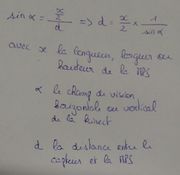 sin α = x/2 / d => d = x/2 × 1/sin α
avec x la longueur, largeur ou
hauteur de la MPS
α le champ de vision
horizontale ou vertical
de la kinect
d la distance entre le
capteur et la MPS